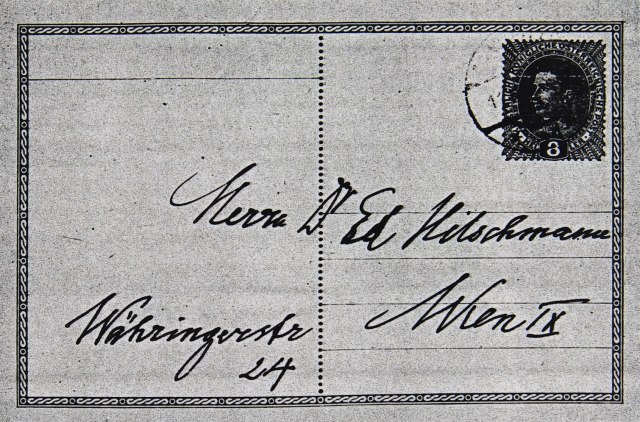 8
Herrn Dr Ed Hitschmann
Wien IX
Währingerstr
24